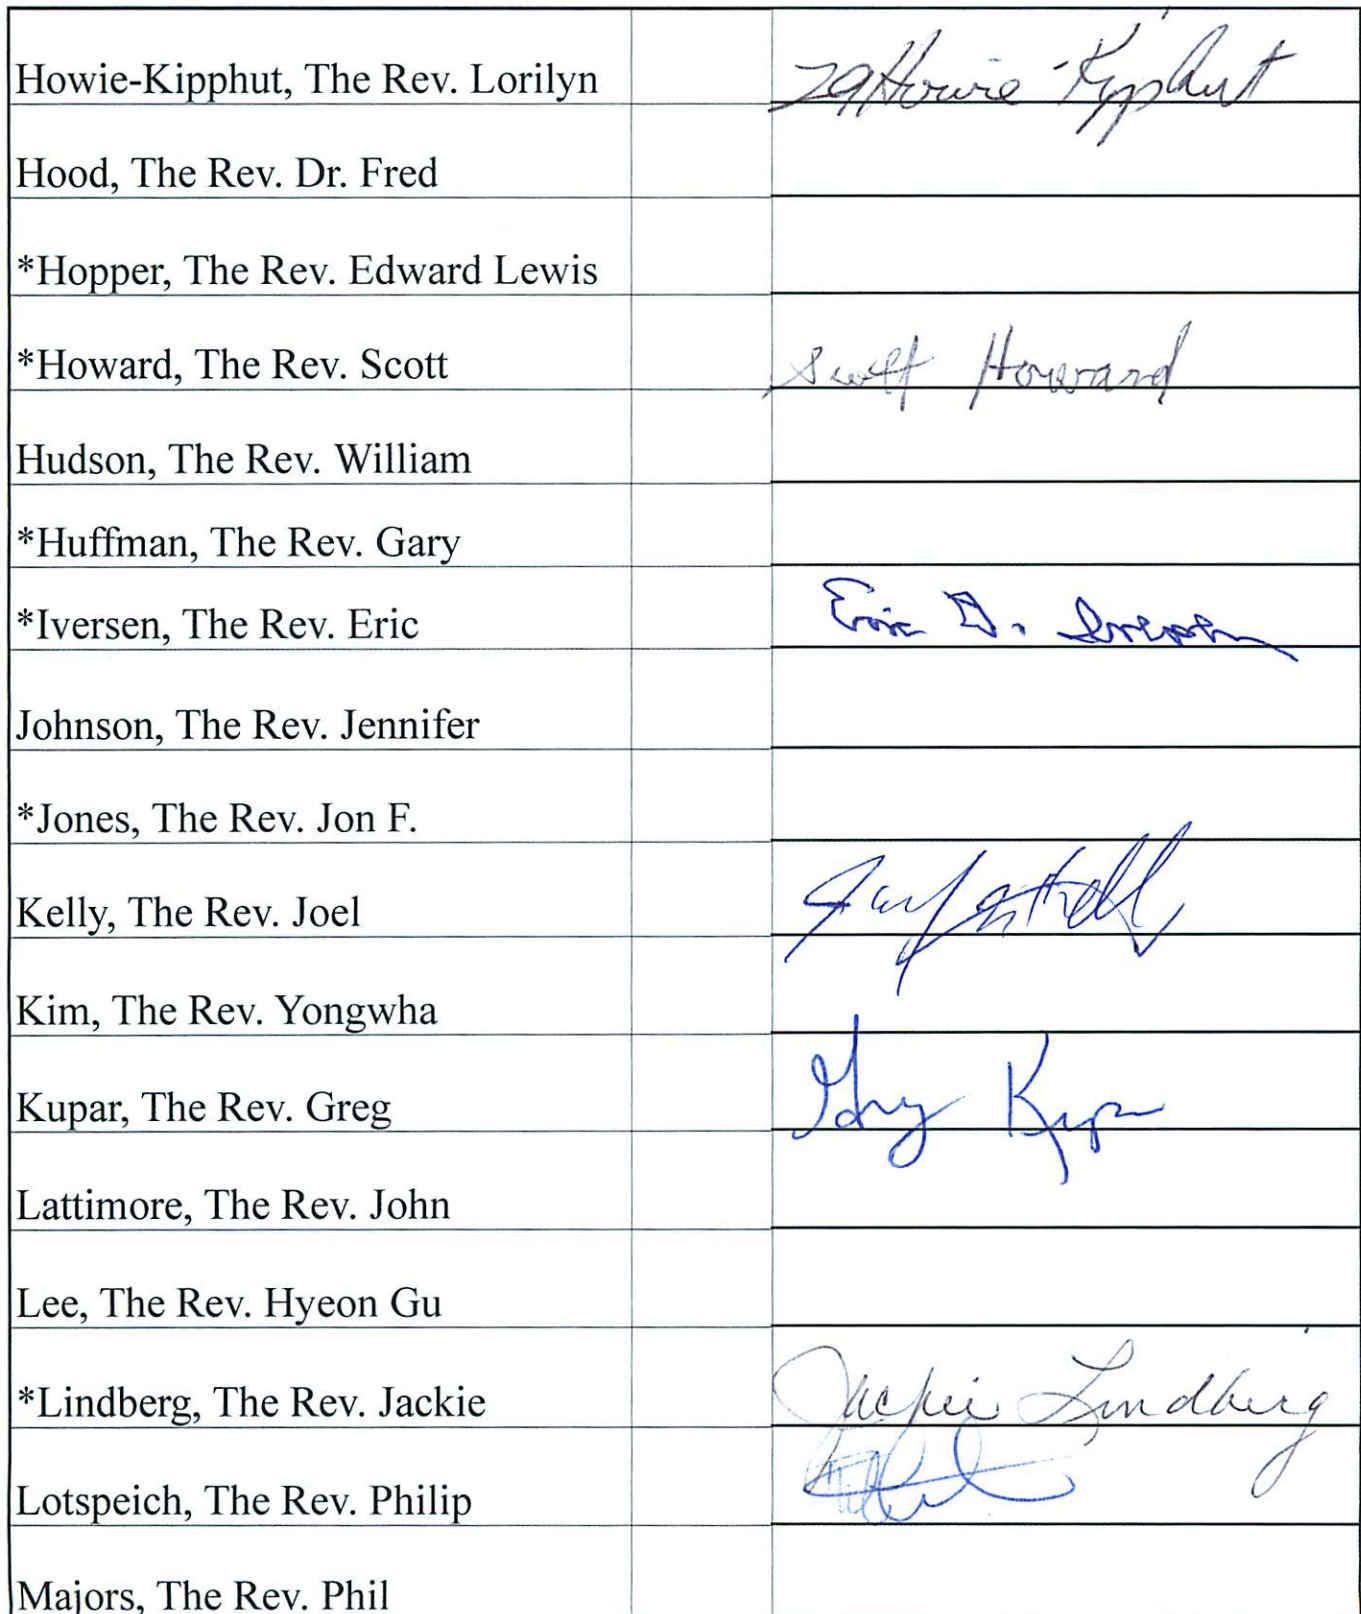 Howie-Kipphut, The Rev. Lorilyn Howie-Kipphut
Hood, The Rev. Dr. Fred
*Hopper, The Rev. Edward Lewis
*Howard, The Rev. Scott Scott Howard
Hudson, The Rev. William
*Huffman, The Rev. Gary
*Iversen, The Rev. Eric Eric D. Iversen
Johnson, The Rev. Jennifer
*Jones, The Rev. Jon F.
Kelly, The Rev. Joel
Kim, The Rev. Yongwha
Kupar, The Rev. Greg Greg Kupar
Lattimore, The Rev. John
Lee, The Rev. Hyeon Gu
*Lindberg, The Rev. Jackie Jackie Lindberg
Lotspeich, The Rev. Philip
Majors, The Rev. Phil